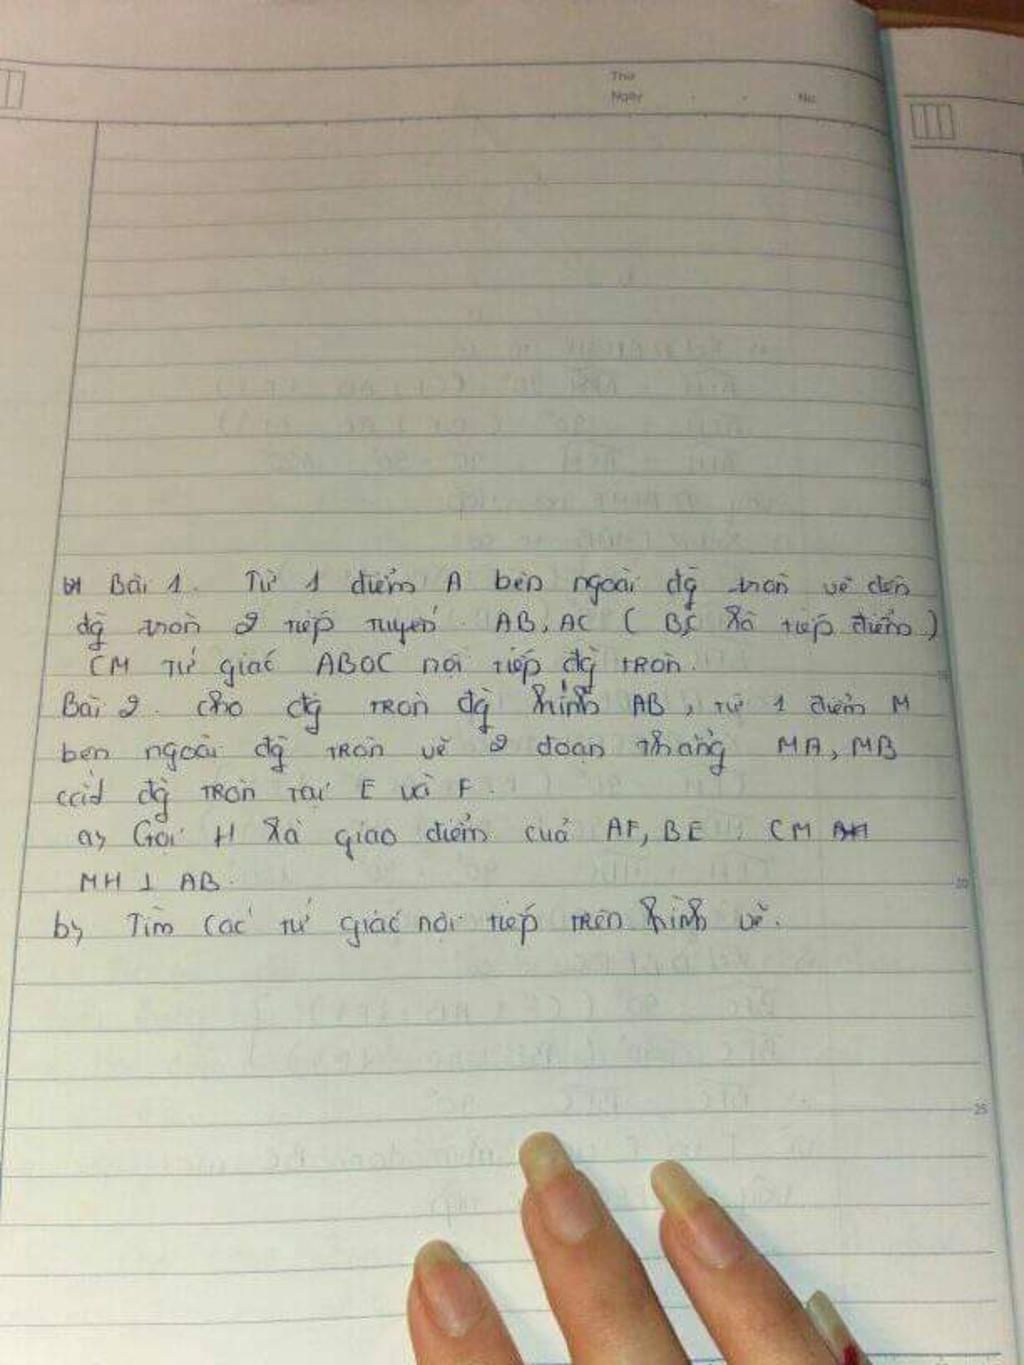 Thứ
Ngày . . No.
Bài 1. Từ 1 điểm A bên ngoài đg tròn vẽ đến
đg tròn 2 tiếp tuyến AB, AC ( B,C là tiếp điểm )
CM tứ giác ABOC nội tiếp đg tròn.
Bài 2. Cho đg tròn đg kính AB, từ 1 điểm M
bên ngoài đg tròn vẽ 2 đoạn thẳng MA, MB
cắt đg tròn tại E và F.
a, Gọi H là giao điểm của AF, BE. CM
MH ⊥ AB.
b, Tìm các tứ giác nội tiếp trên hình vẽ.
20
25